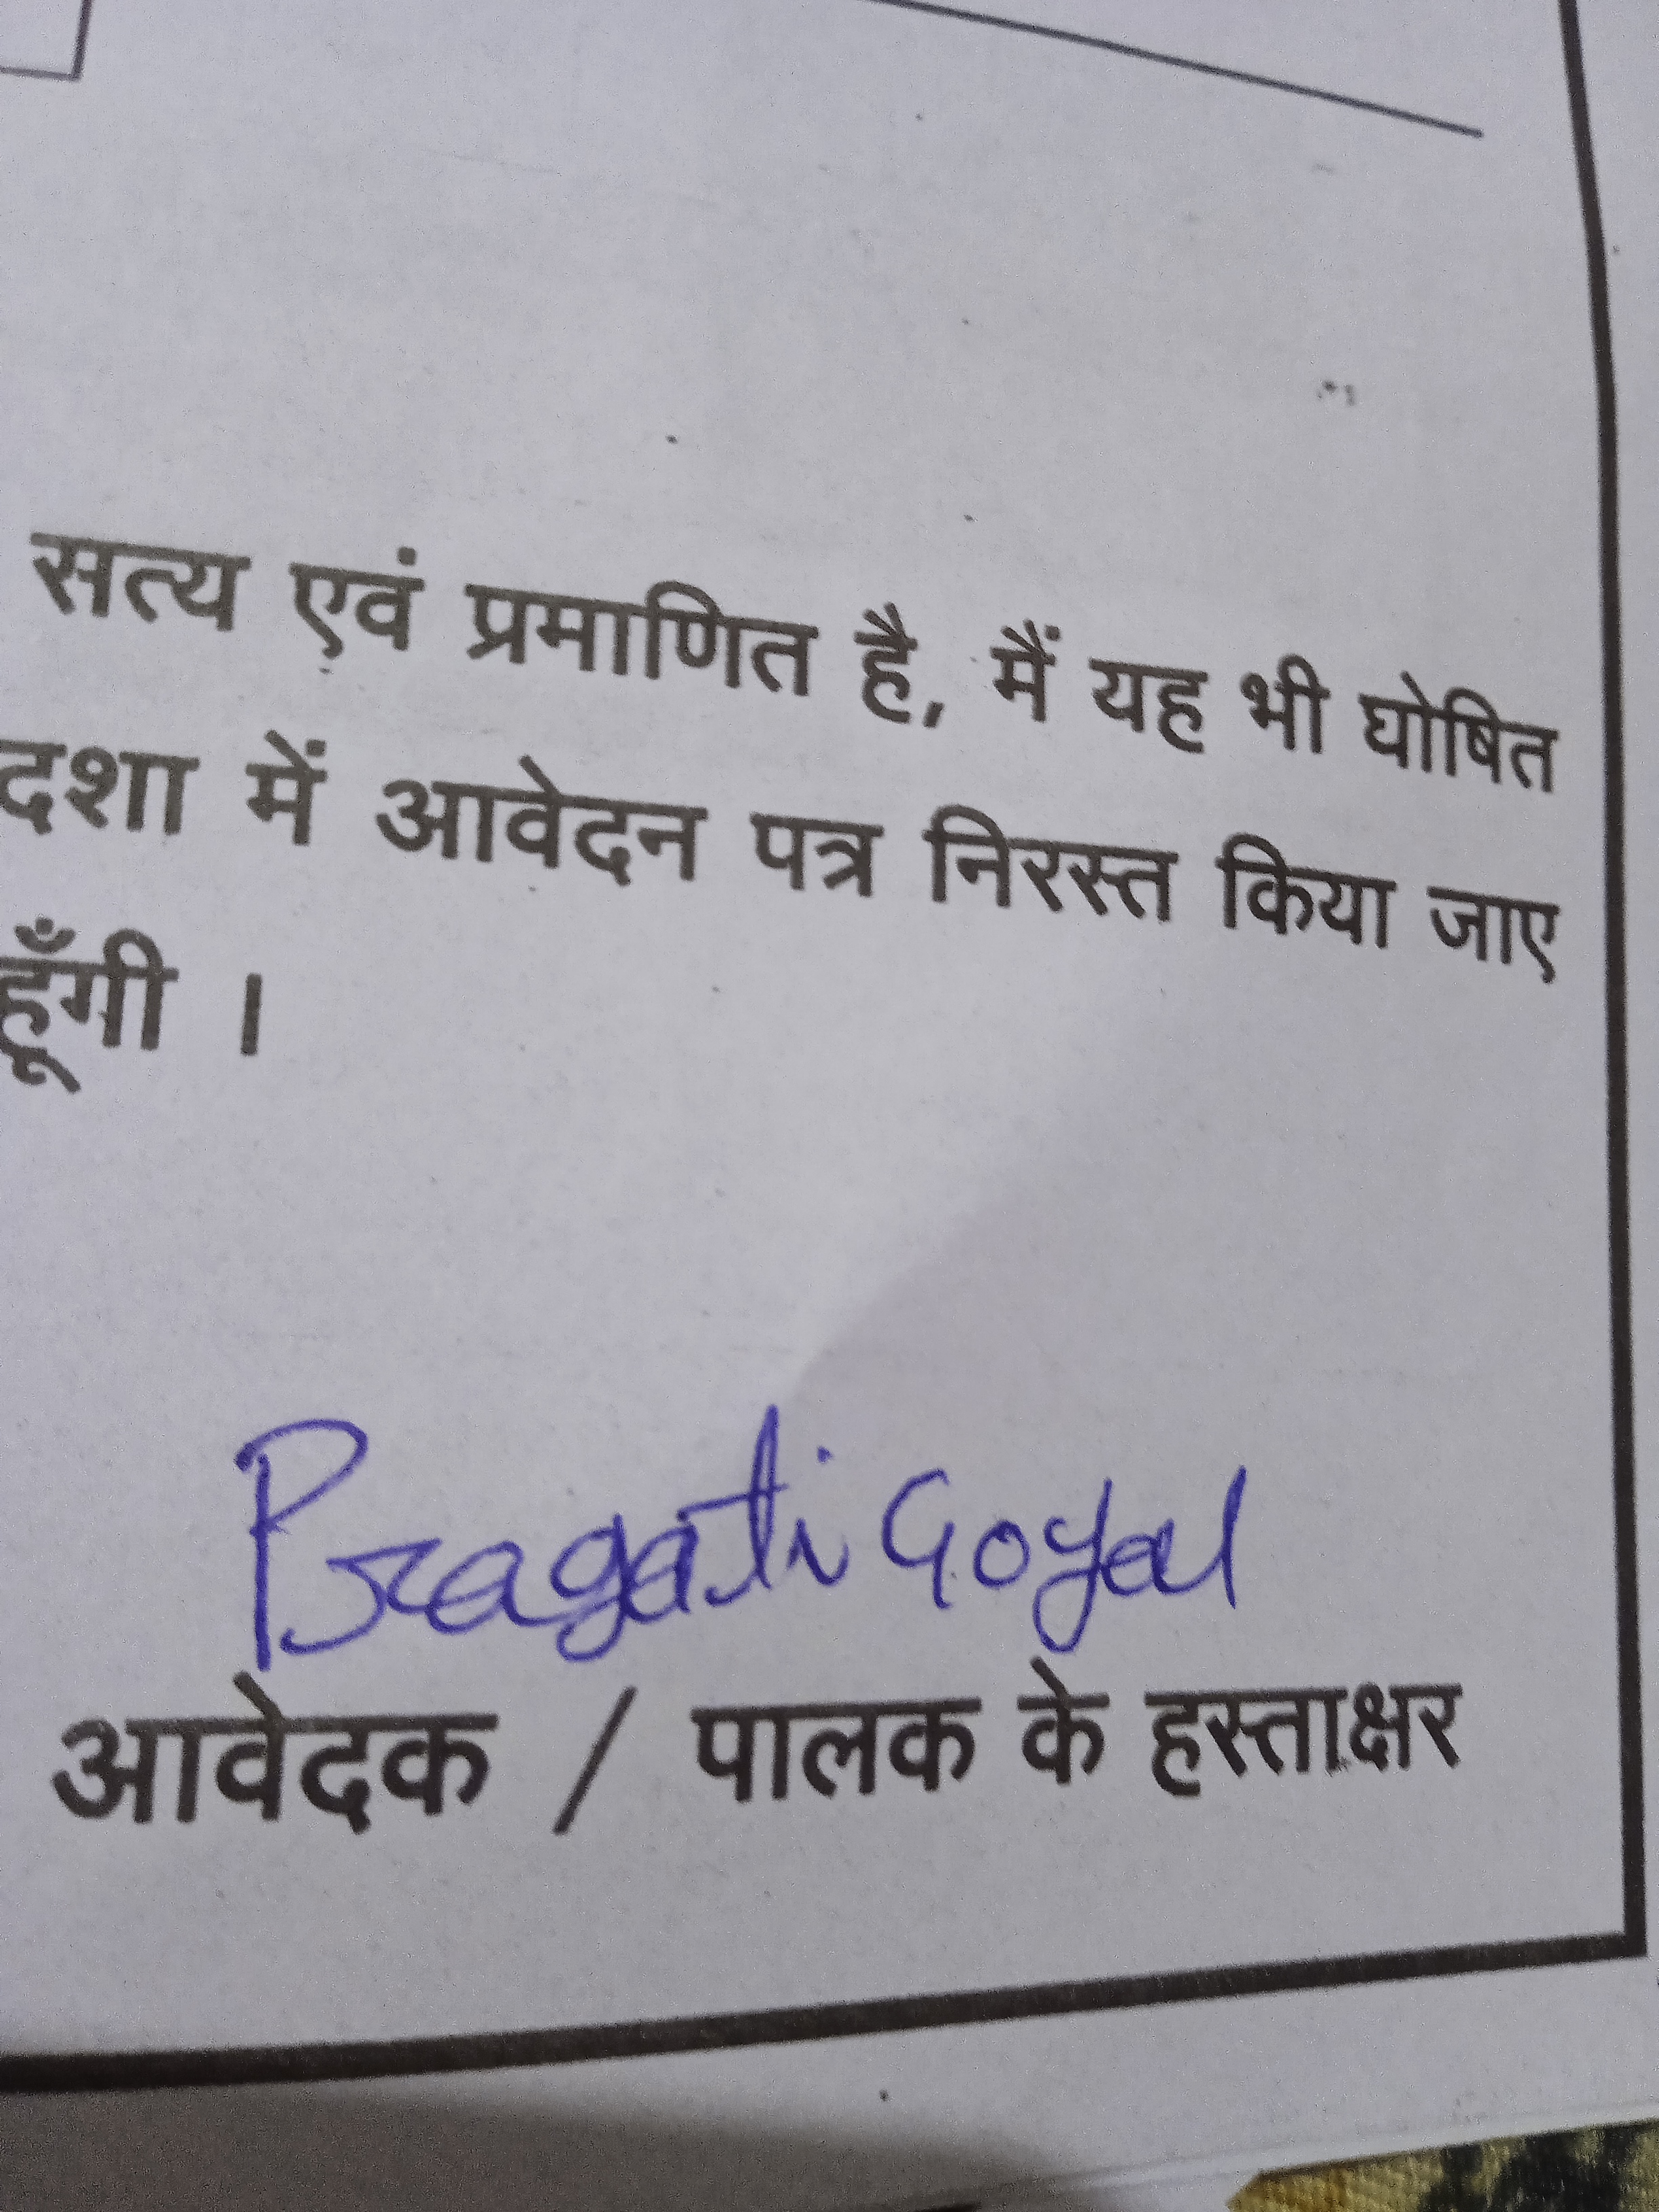 सत्य एवं प्रमाणित है, मैं यह भी घोषित
दशा में आवेदन पत्र निरस्त किया जाए
हूँगी ।
Pragati Goyal
आवेदक / पालक के हस्ताक्षर